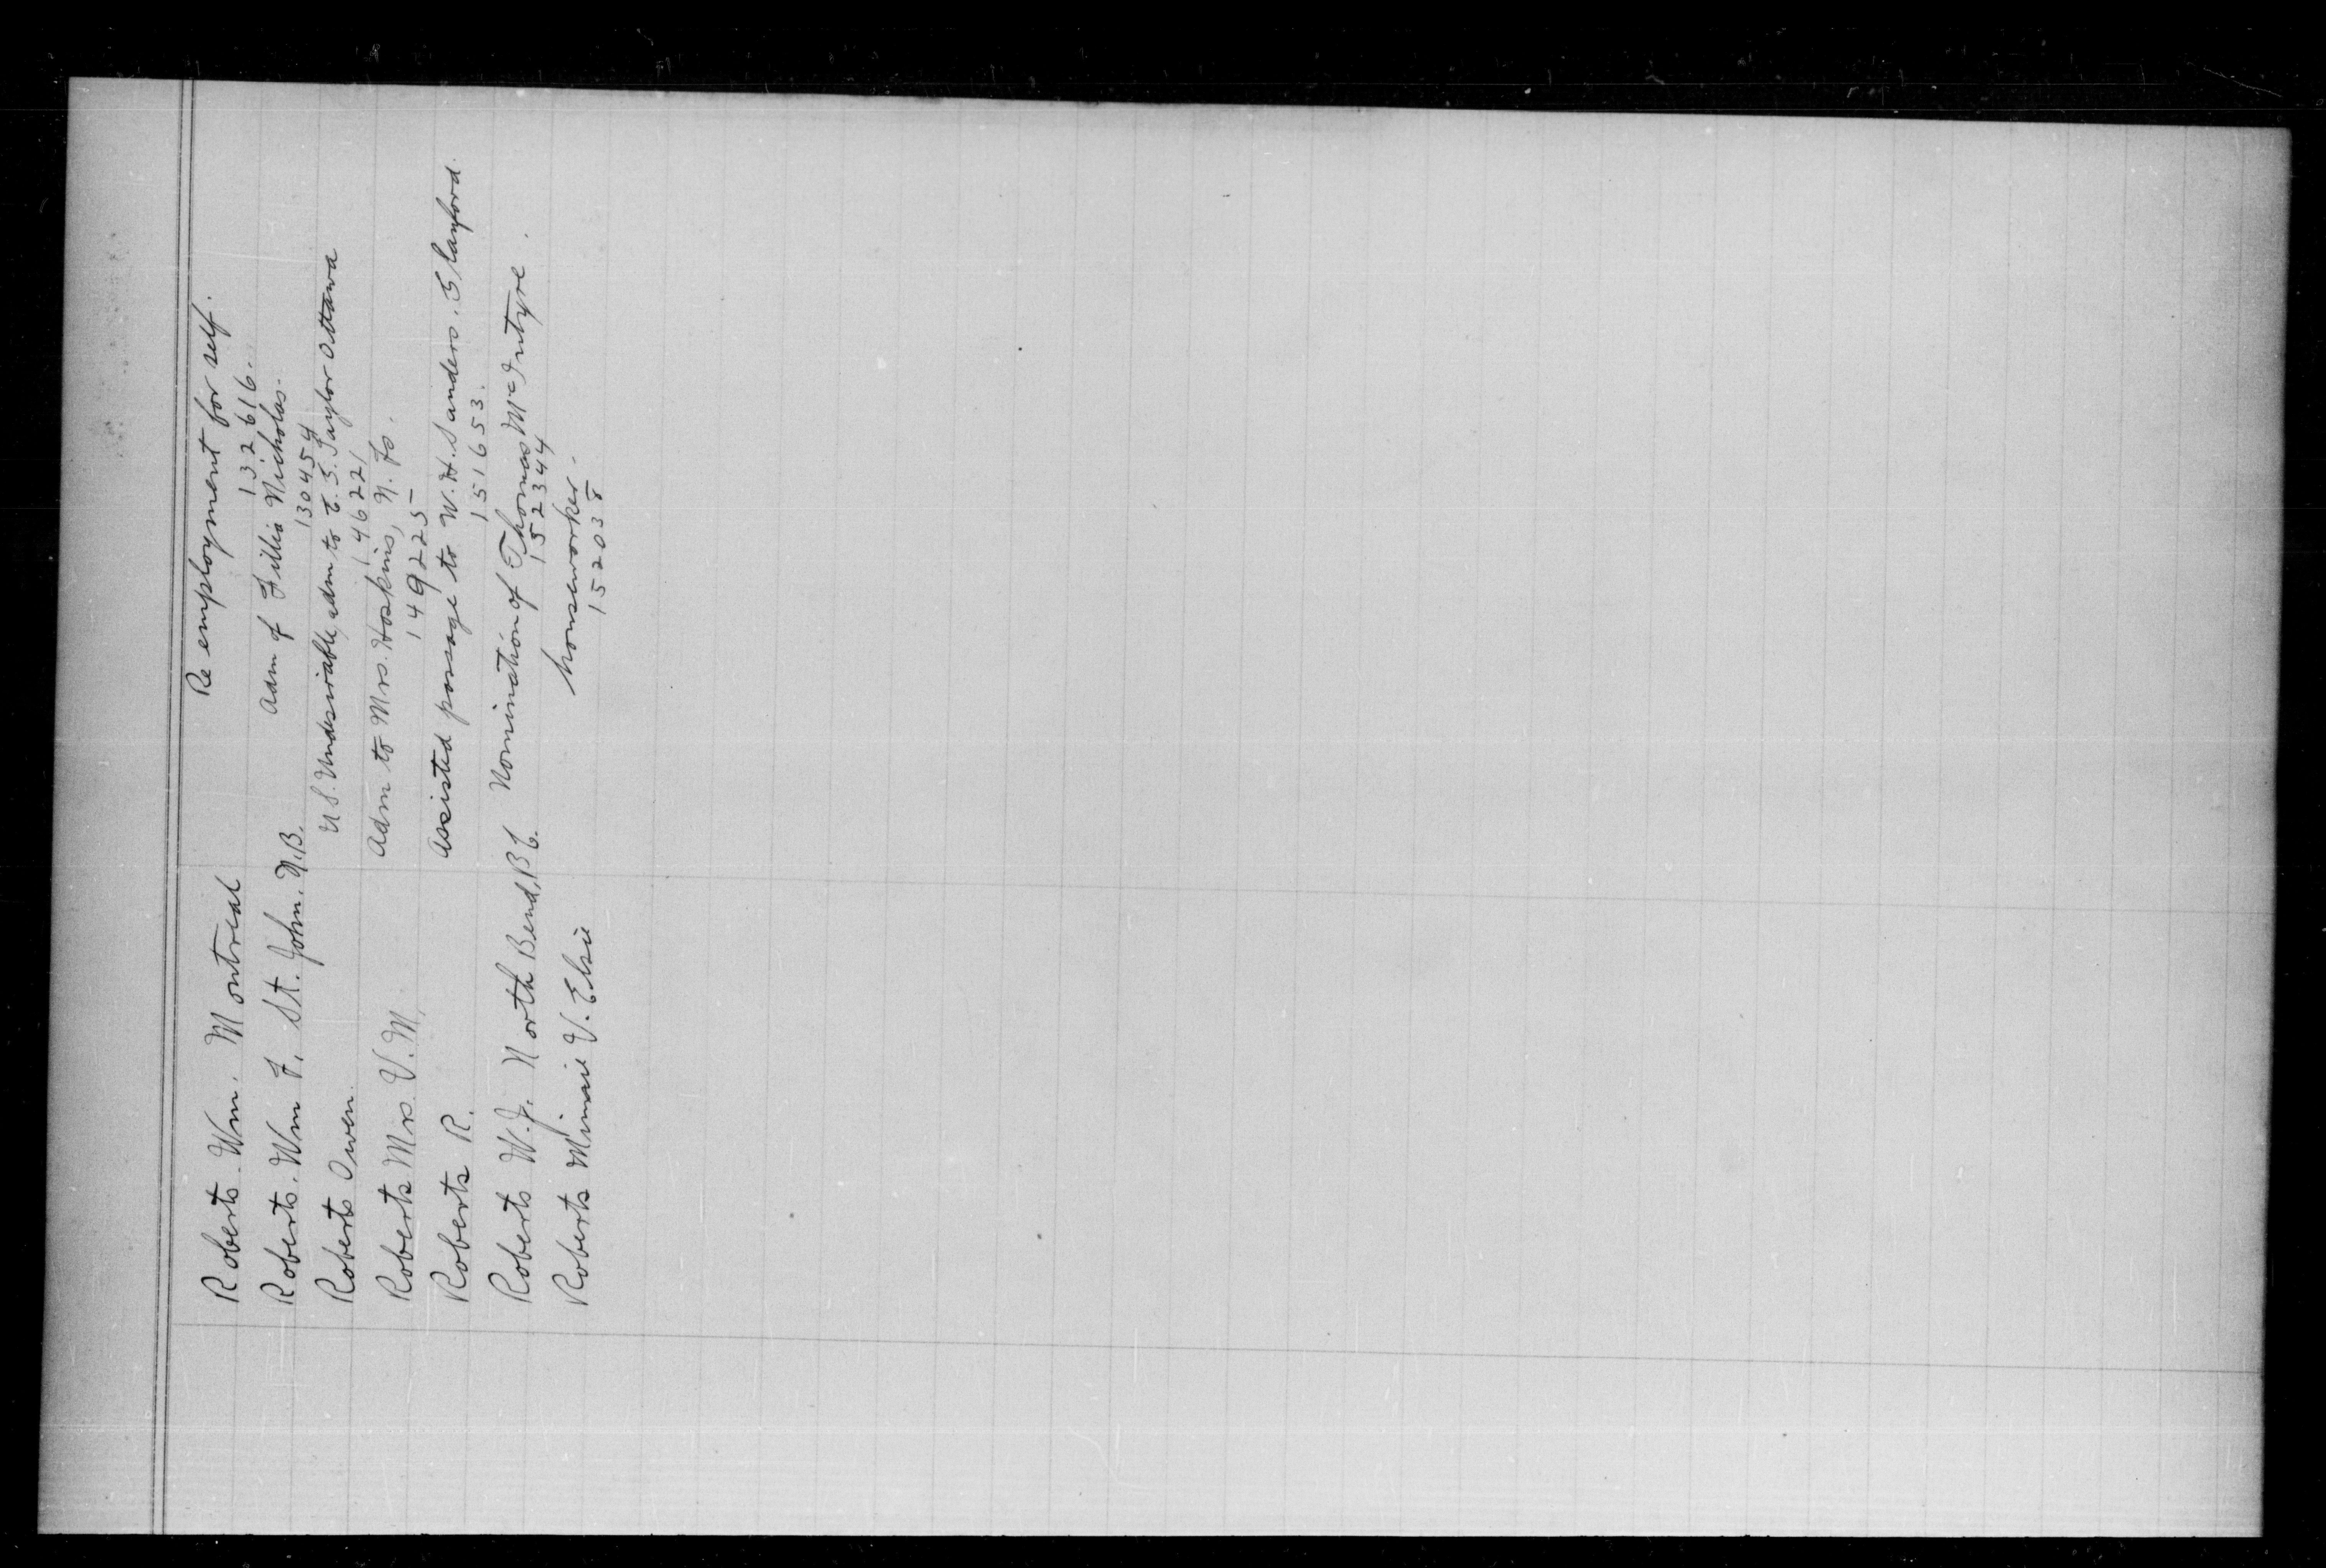 Roberts. Wm. Montreal Re employment for self.
132616.
Roberts. Wm F. St. John. N.B. Adm of Fillis Nicholas.
130454
Roberts Owen. U.S. Undesirable, adm to E. S. Taylor Ottawa
146221
Roberts Mrs. V. M. Adm to Mrs. Hoskins, N. Fs.
149225
Roberts R. Assisted passage to W. H. Sanders.
151653.
Roberts W. J. North Bend, B.C. Nomination of Thomas McIntyre.
152344
Roberts Minnie V. Elsie houseworker.